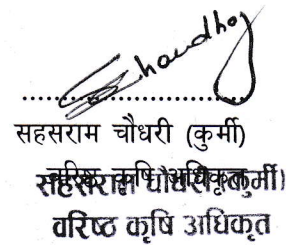 Chaudhary
सहसराम चौधरी (कुर्मी)
वरिष्ठ कृषि अधिकृत
सहसराम चौधरी (कुर्मी)
वरिष्ठ कृषि अधिकृत